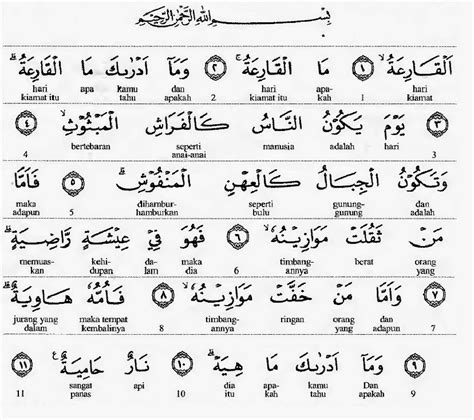 بِسْمِ اللهِ الرَّحْمٰنِ الرَّحِيْمِ
اَلْقَارِعَةُۙ ① مَا الْقَارِعَةُۚ ② وَمَآ اَدْرٰىكَ مَا الْقَارِعَةُۗ
hari apa kamu dan hari apa- hari
kiamat itu tahu apakah 2 kiamat itu kah 1 kiamat
③ يَوْمَ يَكُوْنُ النَّاسُ كَالْفَرَاشِ الْمَبْثُوْثِۙ ④
bertebaran seperti manusia adalah hari
4 anai-anai 3
وَتَكُوْنُ الْجِبَالُ كَالْعِهْنِ الْمَنْفُوْشِۗ ⑤ فَاَمَّا
maka dihambur- seperti gunung- dan
adapun 5 hamburkan bulu gunung adalah
مَنْ ثَقُلَتْ مَوَازِيْنُهٗۙ ⑥ فَهُوَ فِيْ عِيْشَةٍ رَّاضِيَةٍۗ
memuas- kehi- da- maka timbang- berat orang
kan dupan lam dia 6 annya yang
⑦ وَاَمَّا مَنْ خَفَّتْ مَوَازِيْنُهٗۙ ⑧ فَاُمُّهٗ هَاوِيَةٌۗ
jurang yang maka tempat timbang- ringan orang dan
dalam kembalinya 8 annya yang adapun 7
⑨ وَمَآ اَدْرٰىكَ مَا هِيَهْۗ ⑩ نَارٌ حَامِيَةٌ ⑪
sangat api dia apa- kamu Dan
11 panas 10 itu kah tahu apakah 9